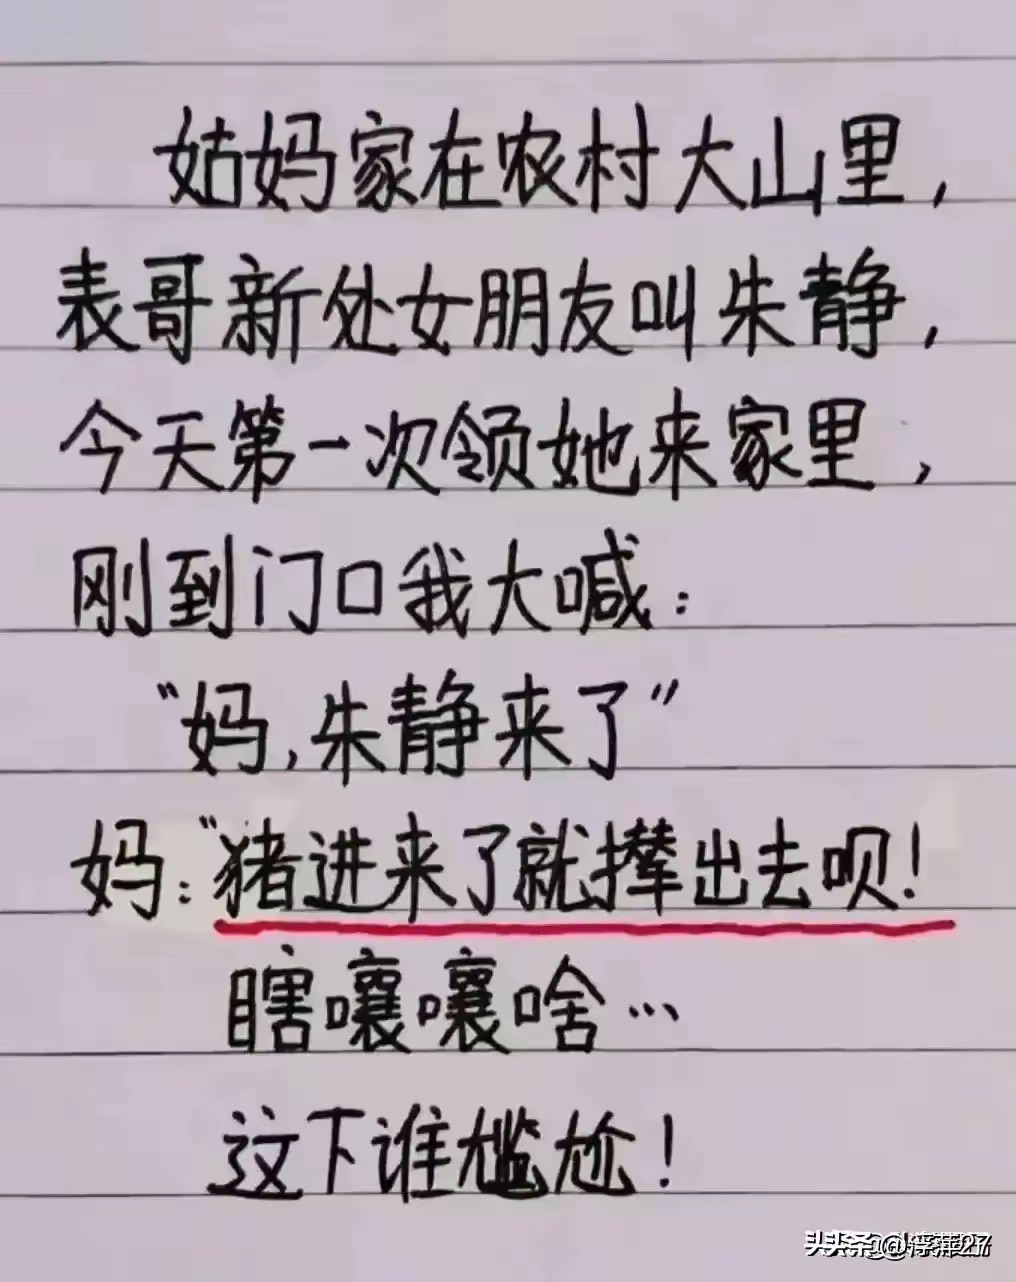 姑妈家在农村大山里,
表哥新处女朋友叫朱静,
今天第一次领她来家里,
刚到门口我大喊:
"妈,朱静来了"
妈:"猪进来了就撵出去呗!
瞎嚷嚷啥…
这下谁尴尬!
头条@
27